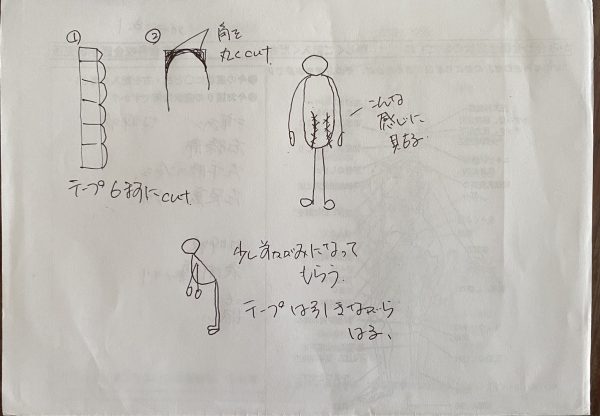 ①
テープ6ますにcut
②
角を
丸くcut
こんな
感じに
見える
少し前かがみになって
もらう.
テープは引きながら
はる、